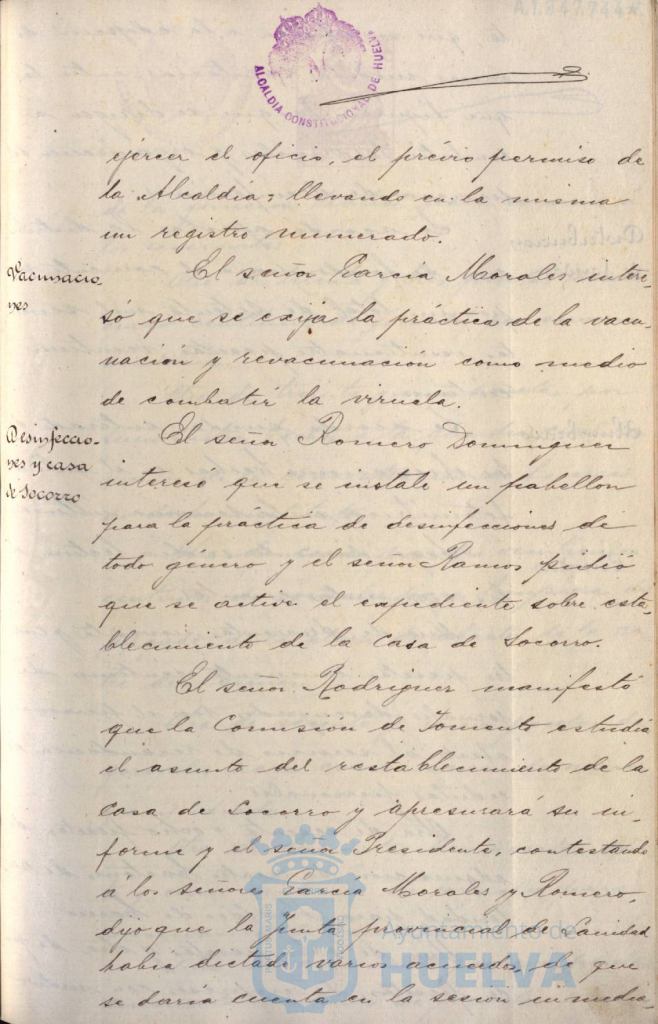 ALCALDIA CONSTITUCIONAL DE HUELVA
ejercer el oficio, el prévio permiso de
la Alcaldia; llevando en la misma
un registro numerado.
Vacunacio-
nes
El señor García Morales intere-
só que se exija la práctica de la vacu-
nación y revacunación como medio
de combatir la viruela.
Desinfeccio-
nes y casa
de Socorro
El señor Romero Dominguez
interesó que se instale un pabellon
para la práctica de desinfecciones de
todo género y el señor Ramos pidió
que se active el expediente sobre esta-
blecimiento de la Casa de Socorro.
El señor Rodriguez manifestó
que la Comisión de Fomento estudia
el asunto del restablecimiento de la
Casa de Socorro y apresurará su in-
forme y el señor Presidente, contestando
á los señores García Morales y Romero,
dijo que la Junta provincial de Sanidad
habia dictado varios acuerdos, de que
se daría cuenta en la sesión inmedia-
Ayuntamiento de
HUELVA